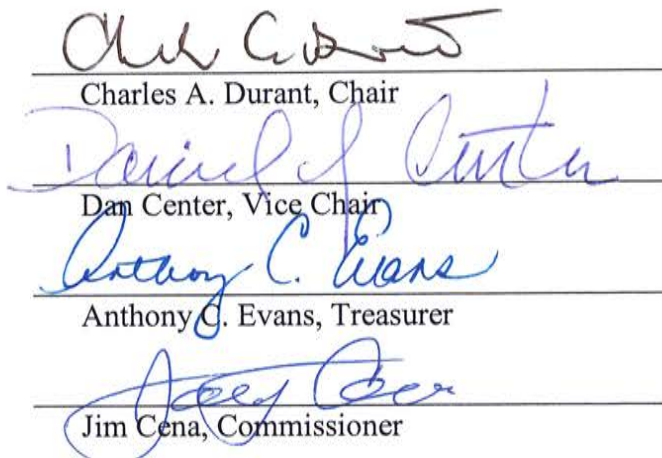 Charles A. Durant, Chair
Daniel J Center
Dan Center, Vice Chair
Anthony C. Evans
Anthony C. Evans, Treasurer
Jim Cena, Commissioner